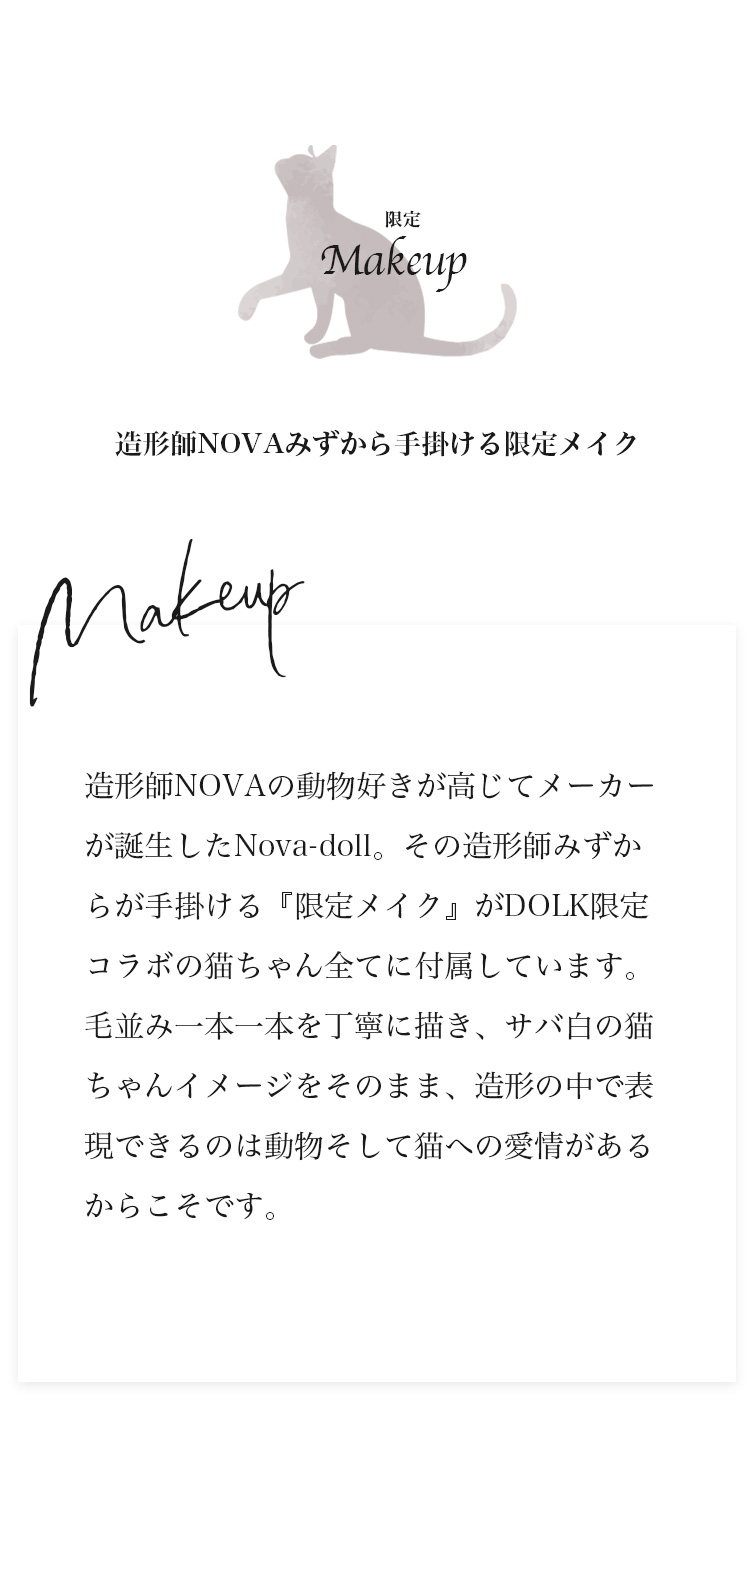 限定
Makeup
造形師NOVAみずから手掛ける限定メイク
Makeup
造形師NOVAの動物好きが高じてメーカー
が誕生したNova-doll。その造形師みずか
らが手掛ける『限定メイク』がDOLK限定
コラボの猫ちゃん全てに付属しています。
毛並み一本一本を丁寧に描き、サバ白の猫
ちゃんイメージをそのまま、造形の中で表
現できるのは動物そして猫への愛情がある
からこそです。